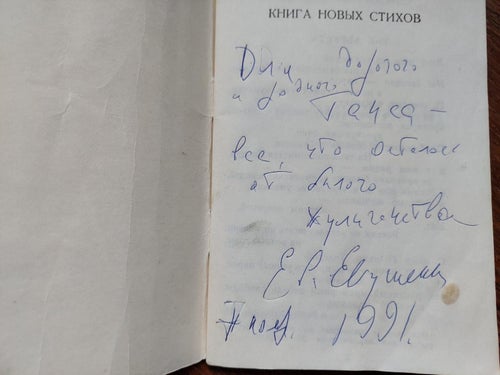 КНИГА НОВЫХ СТИХОВ
Для дорогого
и родного
Ганса –
все, что осталось
от былого
хулиганства
Ев. Евтушенко
1991.